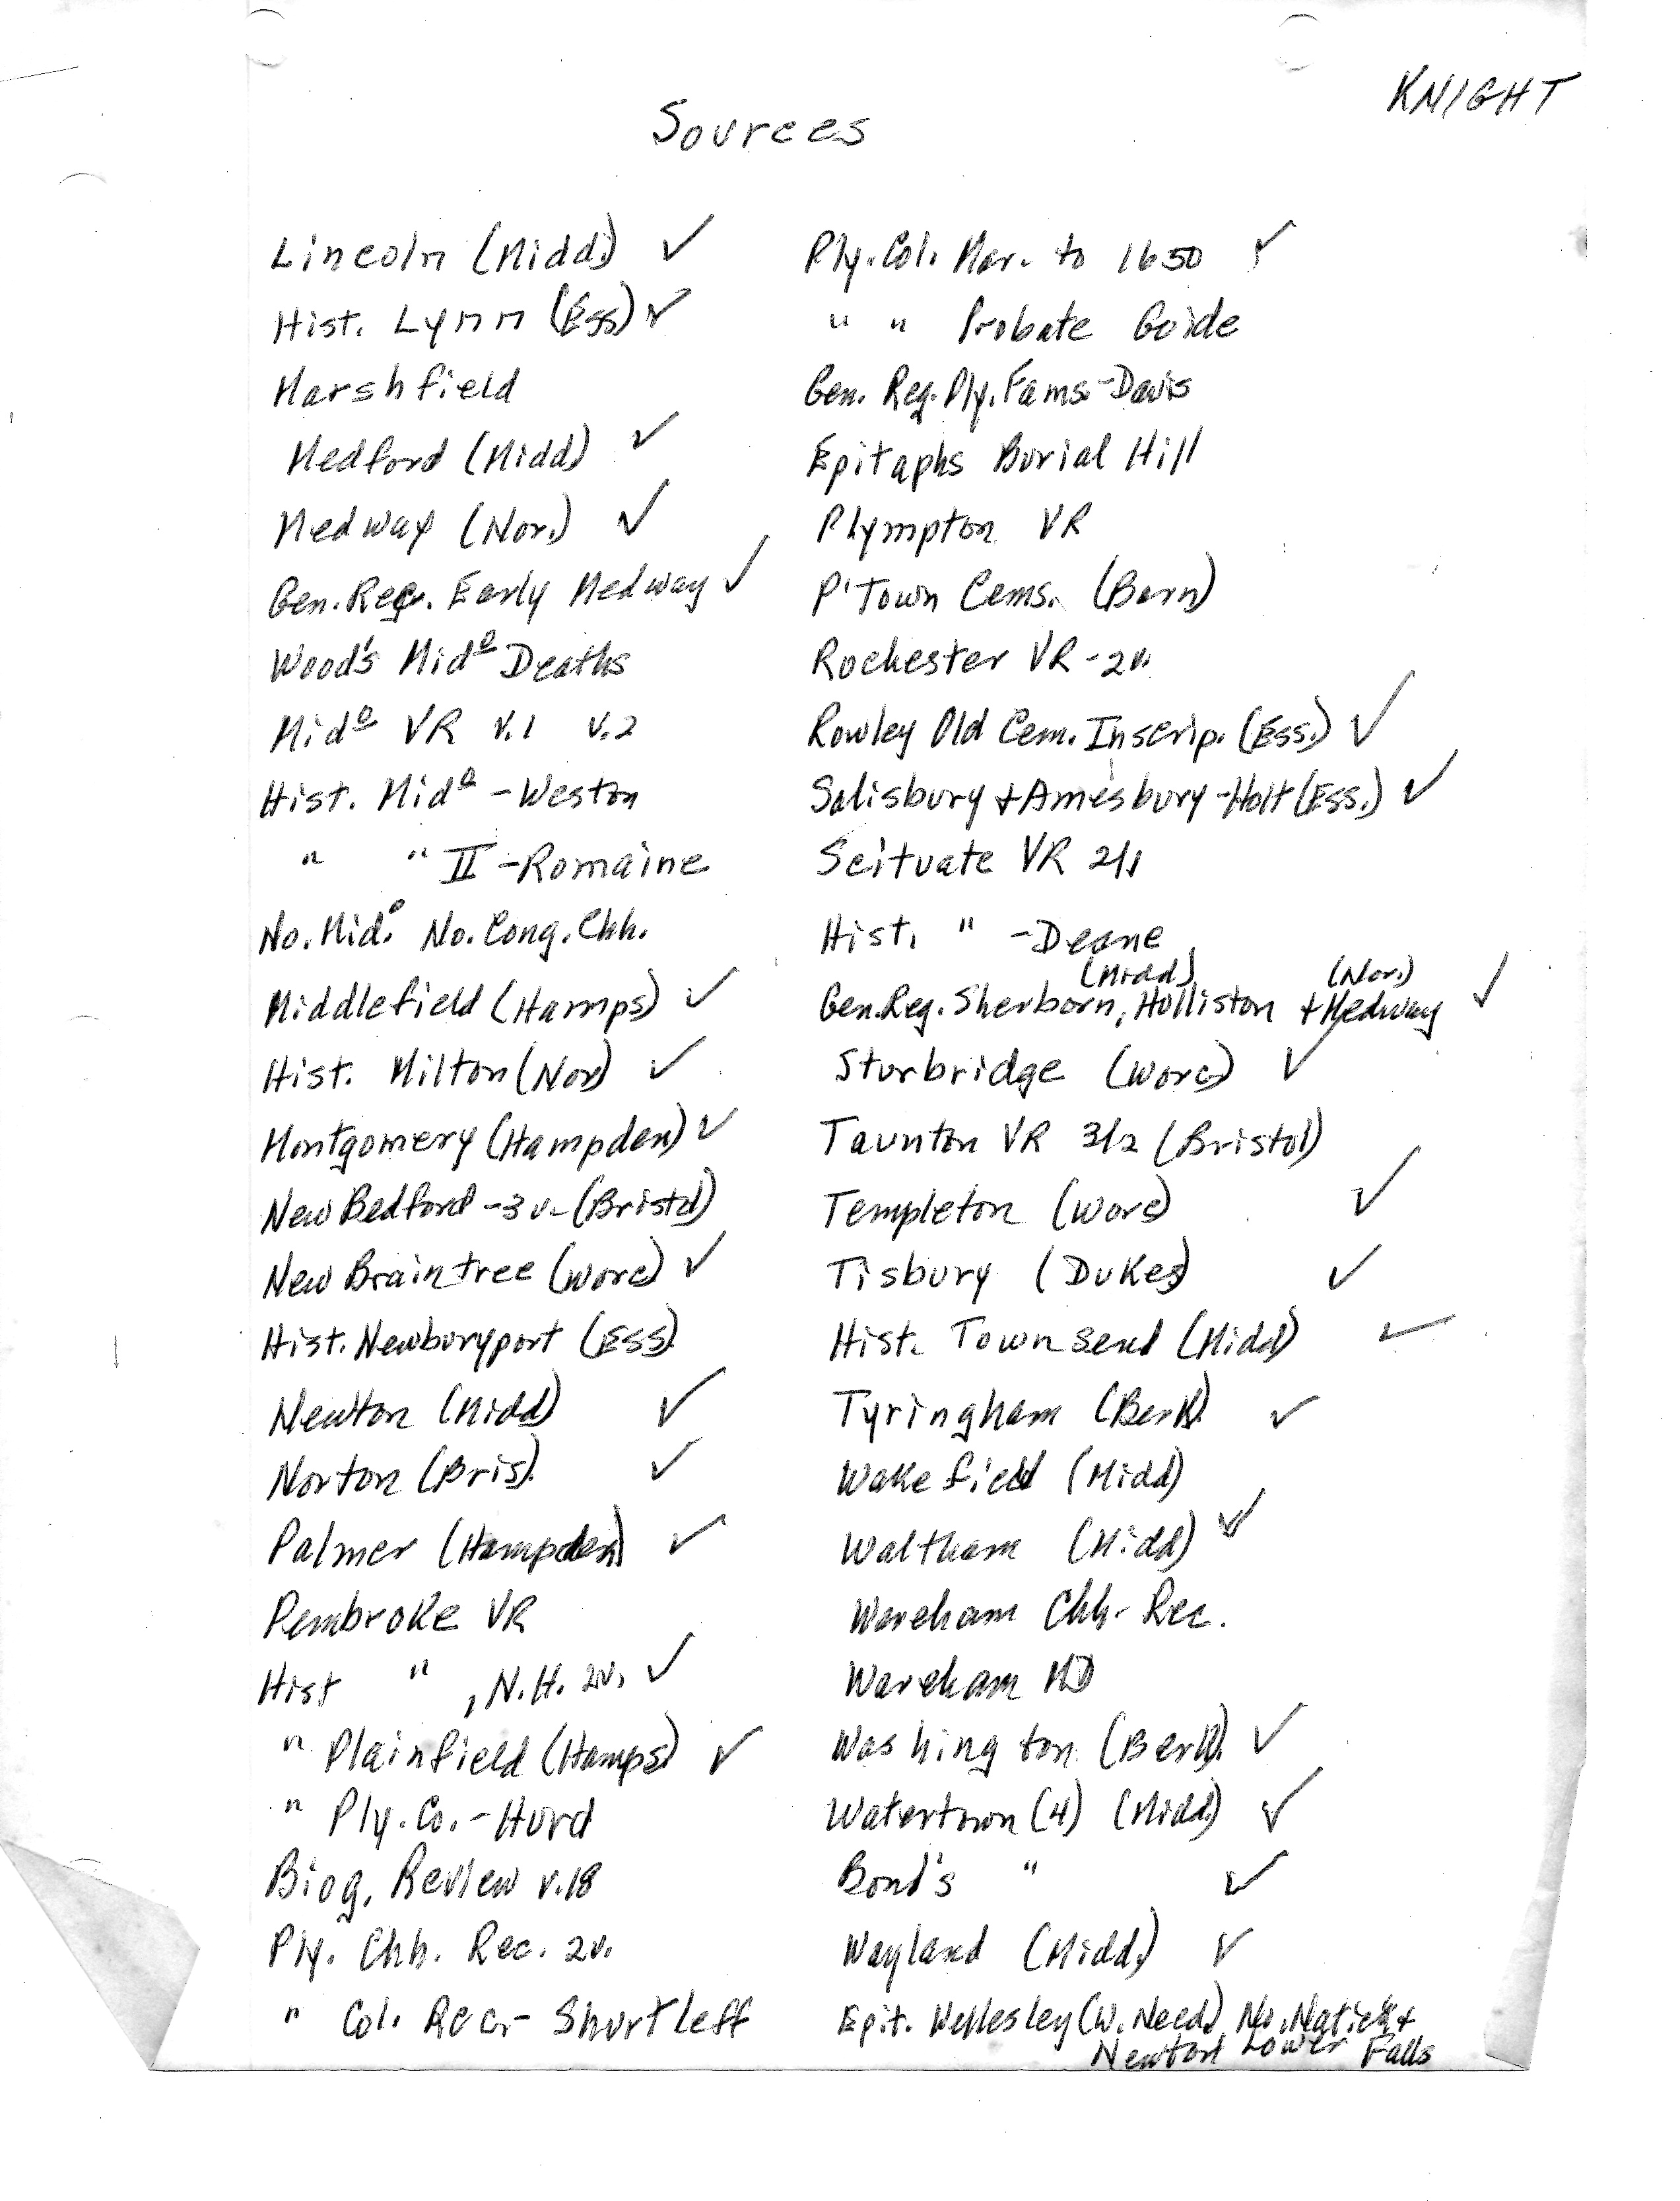 KNIGHT
Sources
Lincoln (Midd.) ✓
Hist. Lynn (Ess) ✓
Marshfield
Medford (Midd) ✓
Medway (Nor.) ✓
Gen. Reg. Early Medway ✓
Wood's Mid⁰ Deaths
Mid⁰ VR v.1 v.2
Hist. Mid⁰ - Weston
" " II - Romaine
No. Mid.⁰ No. Cong. Chh.
Middlefield (Hamps) ✓
Hist. Milton (Nor) ✓
Montgomery (Hampden) ✓
New Bedford - 3 v. (Bristol)
New Braintree (Worc) ✓
Hist. Newburyport (Ess).
Newton (Midd) ✓
Norton (Bris). ✓
Palmer (Hampden) ✓
Pembroke VR
Hist " , N.H. 2v. ✓
" Plainfield (Hamps) ✓
" Ply. Co. - Hurd
Biog. Review v.18
Ply. Chh. Rec. 2v.
" Col. Rec. - Shurtleff
Ply. Col. Mar. to 1650 ✓
" " Probate Guide
Gen. Reg. Ply. Fams. - Davis
Epitaphs Burial Hill
Plympton VR
P'Town Cems. (Barn)
Rochester VR - 2v.
Rowley Old Cem. Inscrip. (Ess.) ✓
Salisbury + Amesbury - Hoit (Ess.) ✓
Scituate VR 2/1
Hist. " - Deane
(Midd) (Nor.)
Gen. Reg. Sherborn, Holliston + Medway ✓
Sturbridge (Worc) ✓
Taunton VR 3/2 (Bristol)
Templeton (Worc) ✓
Tisbury (Dukes) ✓
Hist. Townsend (Midd) ✓
Tyringham (Berk). ✓
Wakefield (Midd)
Waltham (Midd) ✓
Wareham Chh. Rec.
Wareham
Washington (Berk). ✓
Watertown (4) (Midd.) ✓
Bond's " ✓
Wayland (Midd.) ✓
Epit. Wellesley (W. Need.) No. Natick +
Newton Lower Falls